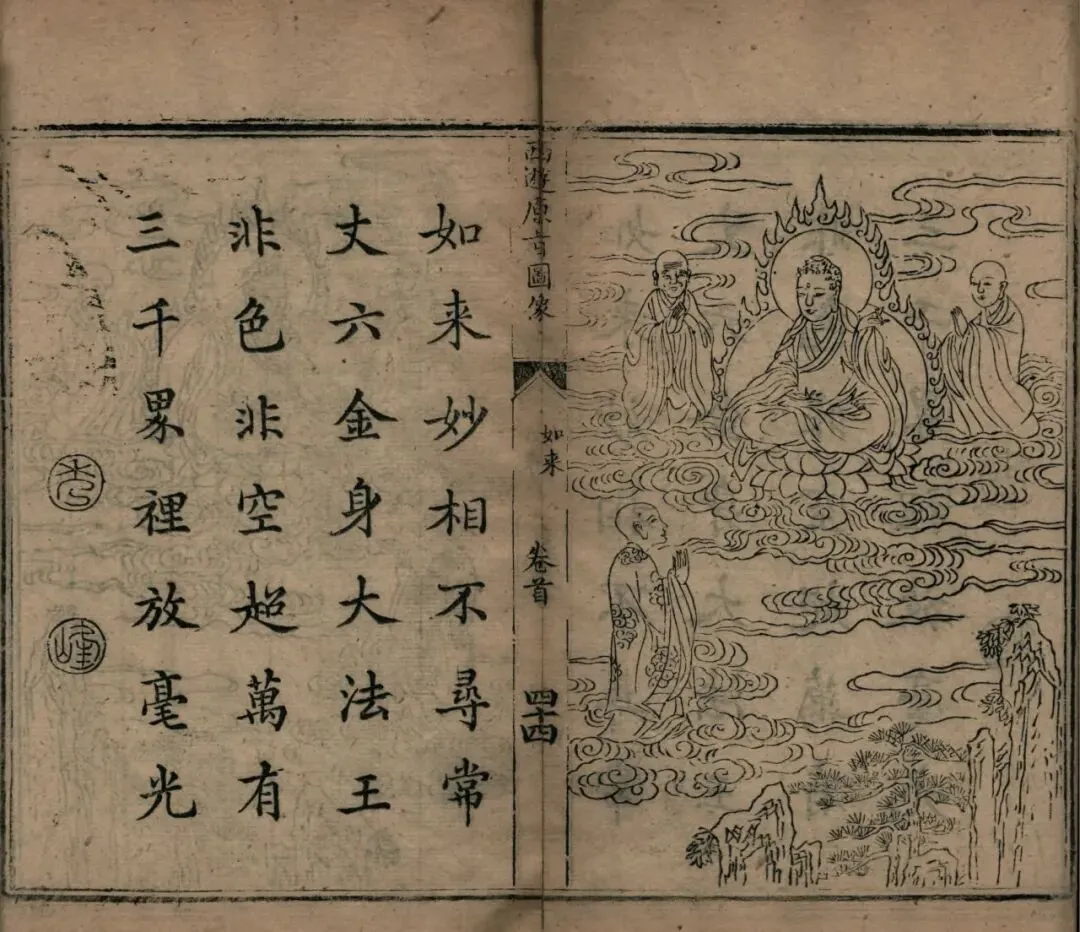 西遊原旨圖像
如来
卷首
四十四
如来妙相不尋常
丈六金身大法王
非色非空超萬有
三千界裡放毫光
峰